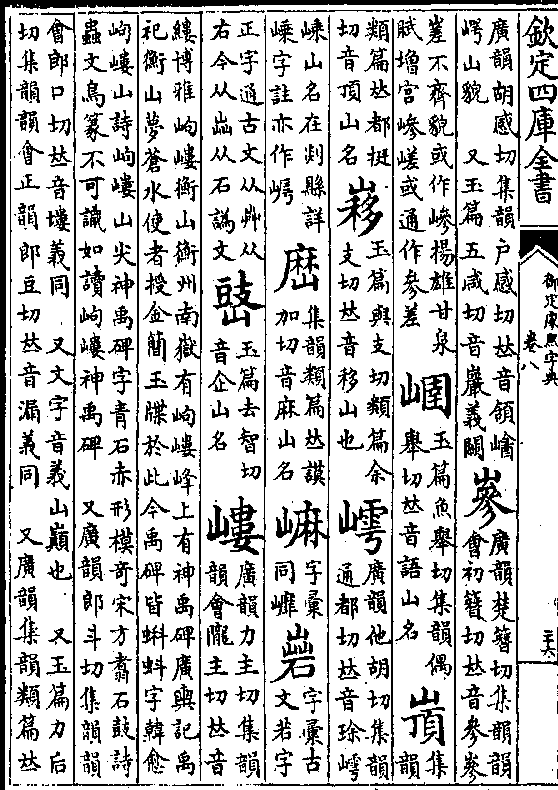 欽定四庫全書
御定康熙字典
卷八
三六
廣韻胡感切集韻戶感切𠀤音頷
山貌　又玉篇五咸切音巖義闕
嵾
廣韻楚簪切集韻韻
會初簪切𠀤音參嵾
嵳不齊貌或作嵾揚雄甘泉
賦增宮嵾嵯或通作參差
玉篇魚舉切集韻偶
舉切𠀤音語山名
集韻
類篇𠀤都挺
切音頂山名
玉篇與支切類篇余
支切𠀤音移山也
嶀
廣韻他胡切集韻
通都切𠀤音㻌嶀
嵊山名在剡縣詳
嵊字註亦作嶀
集韻類篇𠀤謨
加切音麻山名
字彙
同
字彙古
文若字
正字通古文从艸从
右今从屾从石譌文
玉篇去智切
音企山名
嶁
廣韻力主切集韻
韻會隴主切𠀤音
縷博雅岣嶁衡山衡州南嶽有岣嶁峰上有神禹碑廣輿記禹
祀衡山夢蒼水使者授金簡玉牒於此今禹碑皆蝌蚪字韓愈
岣嶁山詩岣嶁山尖神禹碑字青石赤形模奇宋方翥石鼓詩
蟲文鳥篆不可識如讀岣嶁神禹碑　又廣韻郎斗切集韻韻
會郎口切𠀤音塿義同　又文字音義山巔也　又玉篇力后
切集韻韻會正韻郎豆切𠀤音漏義同　又廣韻集韻類篇𠀤